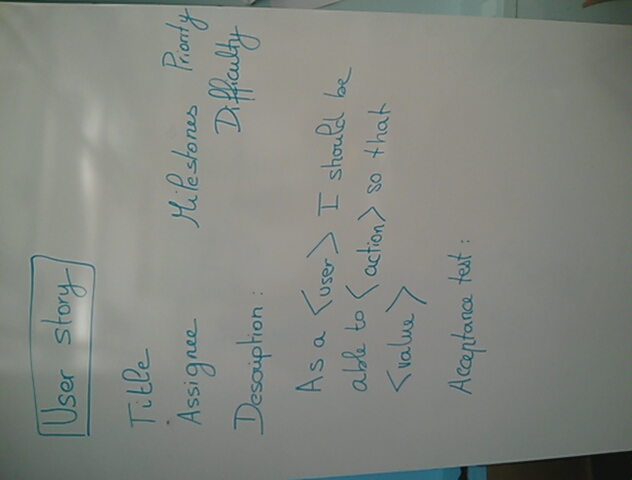 User story
Title
Assignee Milestones Priority
Difficulty
Description:
As a <user> I should be
able to <action> so that
<value>
Acceptance test: